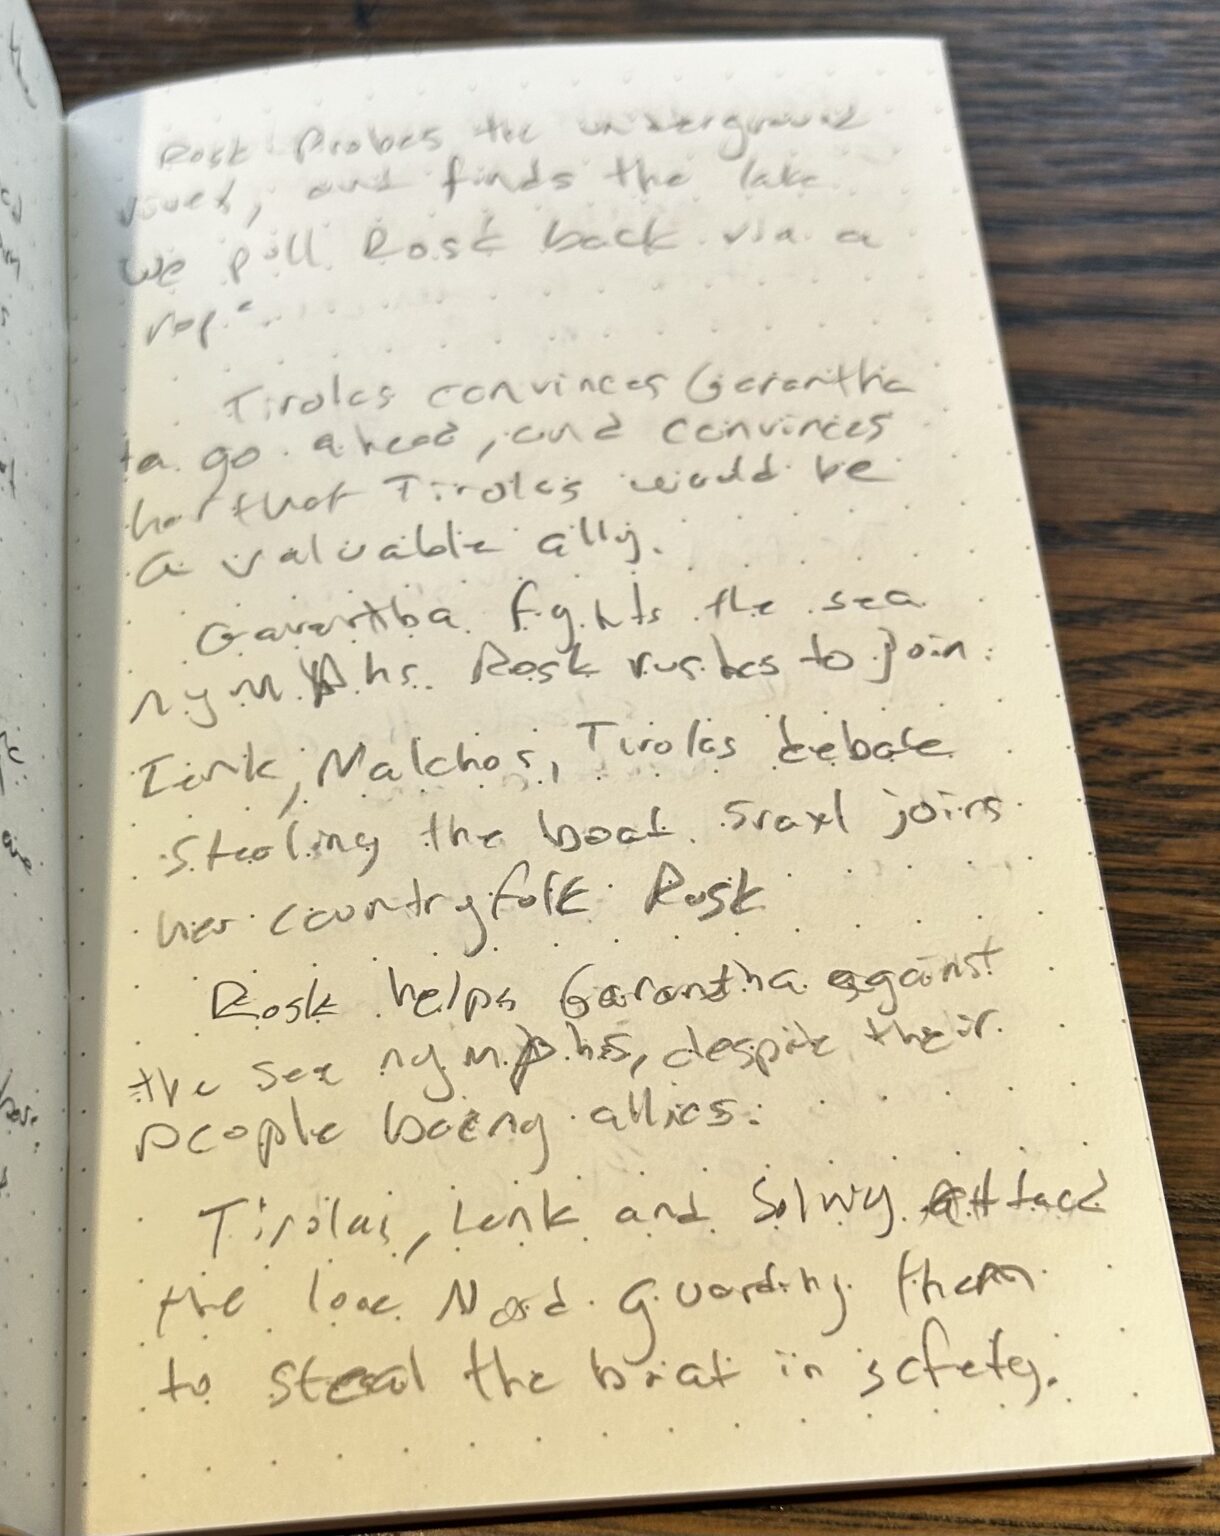 Rosk Probes the underground
river, and finds the lake
We pull Rosk back via a
rope.
Tirolas convinces Garantha
to go ahead, and convinces
her that Tirolas would be
a valuable ally.
Garantha fights the sea
nymphs. Rosk rushes to join.
Lenk, Malchos, Tirolas debate
stealing the boat. Sraxl joins
her countryfolk Rosk
Rosk helps Garantha against
the sea nymphs, despite their
people being allies.
Tirolas, Lenk and Solwy attack
the lone Nord guarding them
to steal the boat in safety.